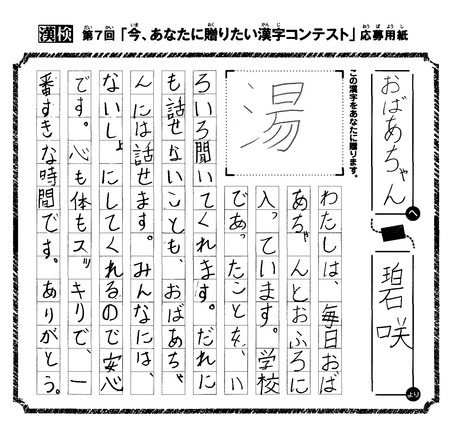 漢検 第7回「今、あなたに贈りたい漢字コンテスト」応募用紙
おばあちゃんへ
碧咲より
この漢字をあなたに贈ります。
湯
わたしは、毎日おば
あちゃんとおふろに
入っています。学校
であったことを、い
ろいろ聞いてくれます。だれに
も話せないことも、おばあちゃ
んには話せます。みんなには、
ないしょにしてくれるので安心
です。心も体もスッキリで、一
番すきな時間です。ありがとう。